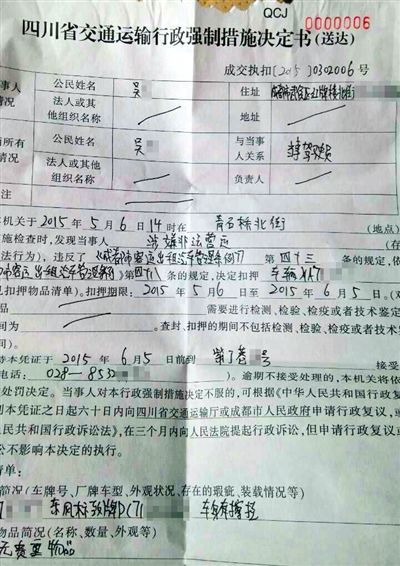 QCJ
0000006
四川省交通运输行政强制措施决定书(送达)
成交执扣[2015]0302006号
事人 公民姓名 吴 住址
情况 法人或其他组织名称 地址
所有 公民姓名 吴 与当事人关系
情况 法人或其他组织名称 负责人
注
本机关于2015年5月6日14时在 青石桥北街 (地点)
施检查时,发现当事人 涉嫌非法营运 (存在
法行为),违反了《成都市客运出租汽车管理条例》第四十三条的规定,依
市客运出租汽车管理条例》第四十八条的规定,决定扣押 车辆
扣押物品清单)。扣押期限:2015年5月6日至2015年6月5日。(对
需要进行检测、检验、检疫或者技术鉴定
间为 。查封、扣押的期间不包括检测、检验、检疫或者技术鉴定
持本凭证于2015年6月5日前到 号 接受
电话:028-8532 )。逾期不接受处理的,本机关将依
处罚决定。当事人对本行政强制措施决定不服的,可根据《中华人民共和国
到本凭证之日起六十日内向四川省交通运输厅或成都市人民政府申请行政复议,或
民共和国行政诉讼法》,在三个月内向人民法院提起行政诉讼,但申请行政复议或
讼不影响本决定的执行。
清单:
简况(车牌号、厂牌车型、外观状况、存在的瑕疵、装载情况等)
71 东风标致牌DC71 车身有擦挂
物品简况(名称、数量、外观等)
无贵重物品